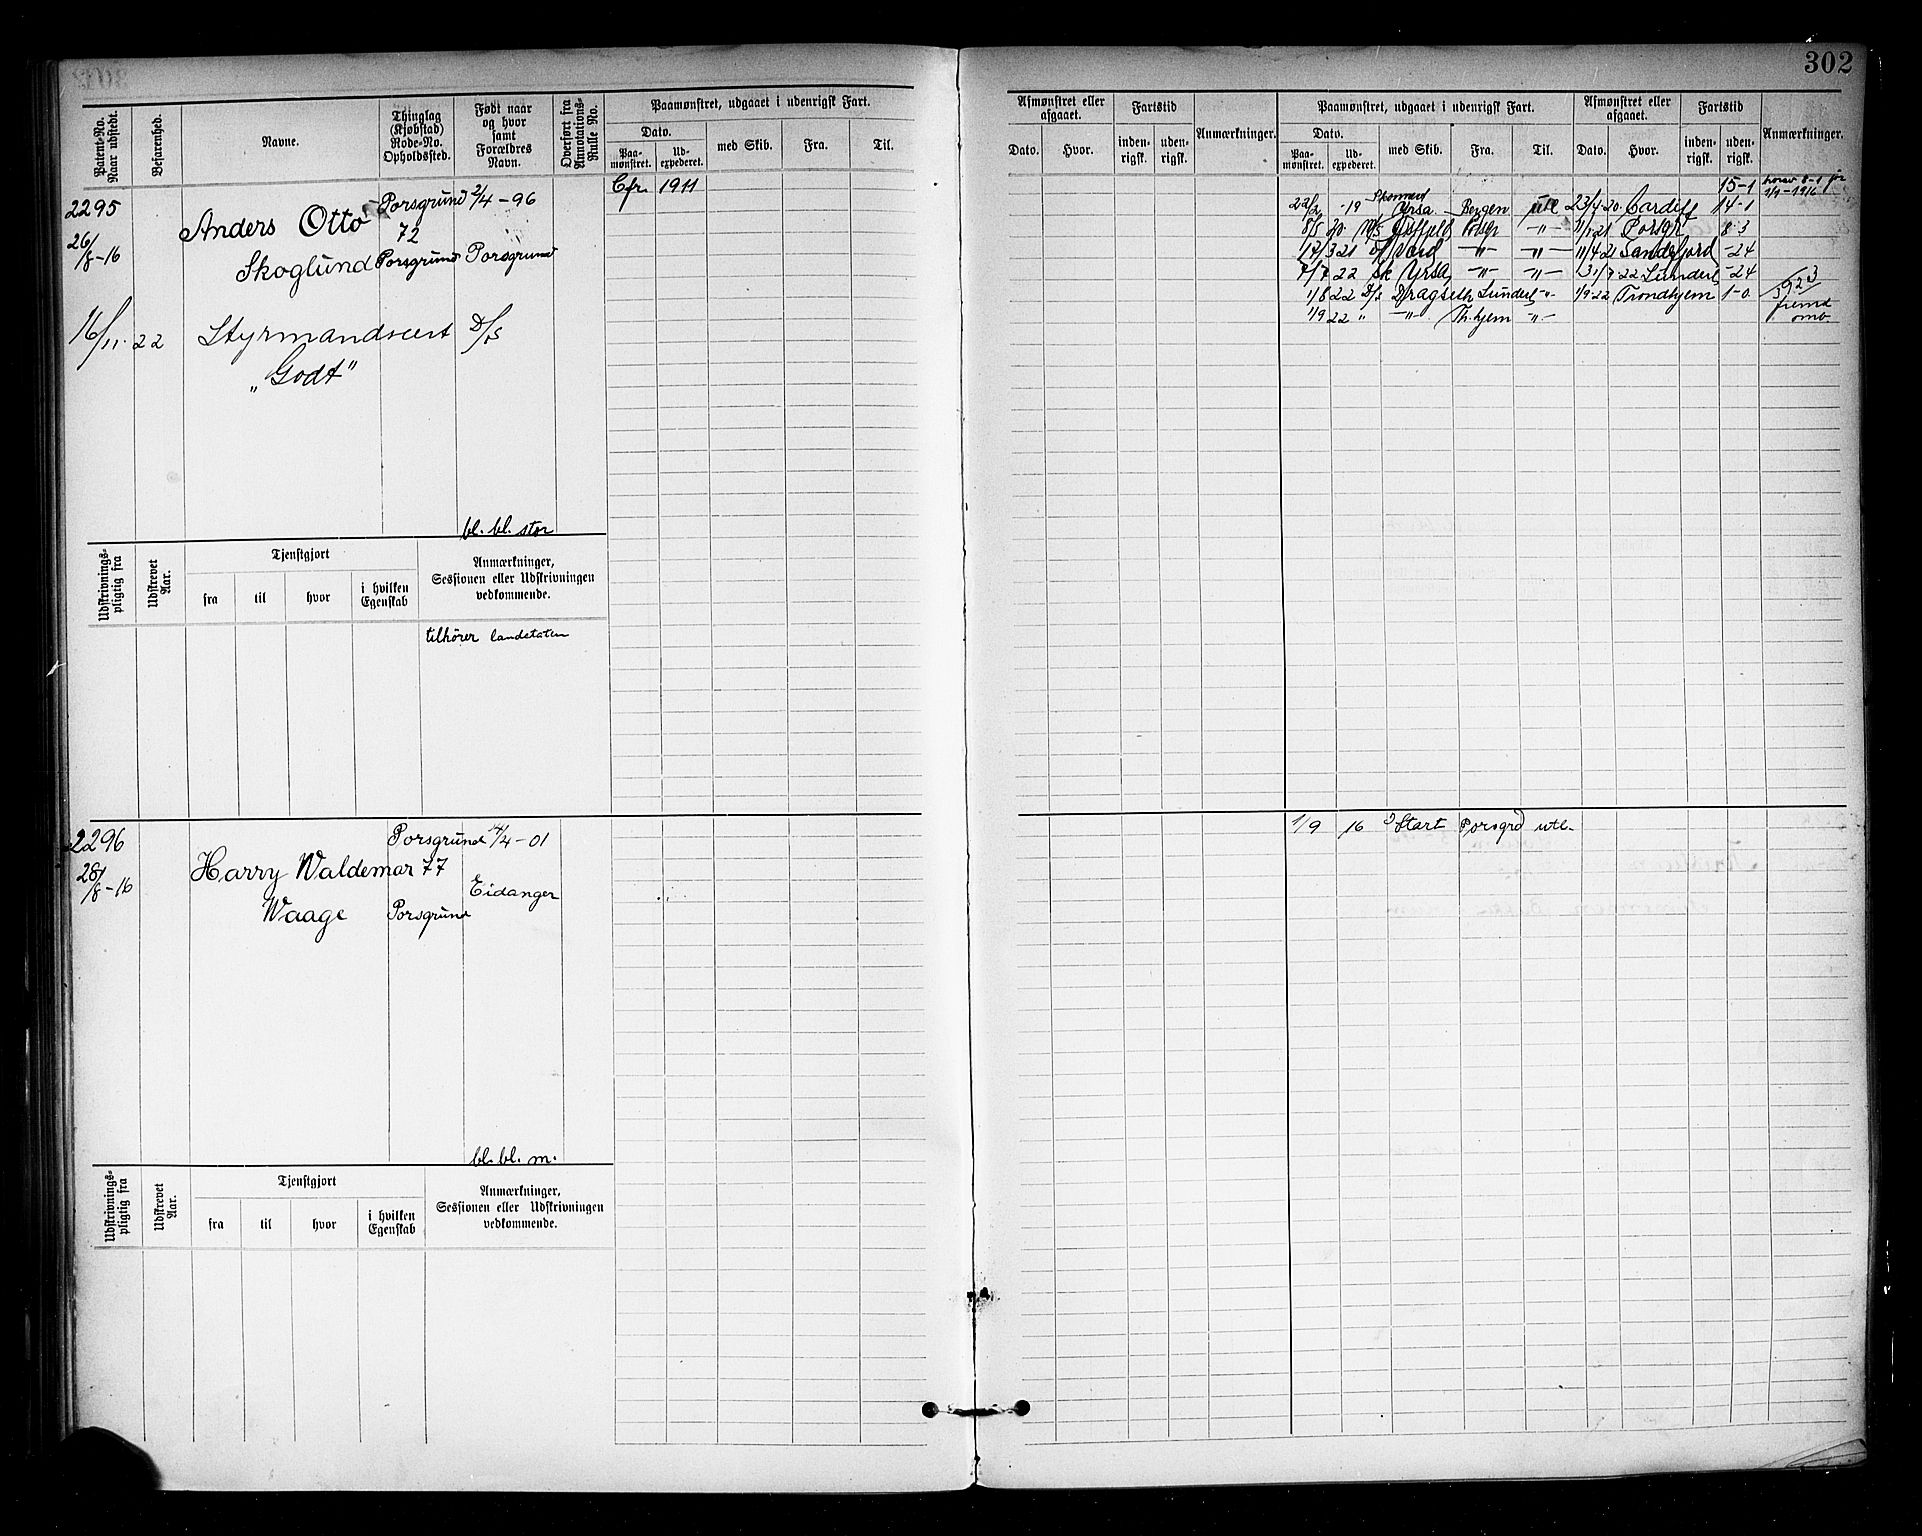 302
Patent-No.
Naar udstedt.
Befarenhed.
Navne.
Thinglag
(Kjøbstad)
Rode-No.
Opholdssted.
Født naar
og hvor
samt
Forældres
Navn.
Overført fra
Annotations-
Rulle No.
Paamønstret, udgaaet i udenrigsk Fart.
Dato.
Paa-
mønstret.
Ud-
expederet.
med Skib.
Fra.
Til.
Afmønstret eller
afgaaet.
Dato.
Hvor.
Fartstid
inden-
rigsk.
uden-
rigsk.
Anmærkninger.
Paamønstret, udgaaet i udenrigsk Fart.
Dato.
Paa-
mønstret.
Ud-
expederet.
med Skib.
Fra.
Til.
Afmønstret eller
afgaaet.
Dato.
Hvor.
Fartstid
inden-
rigsk.
uden-
rigsk.
Anmærkninger.
2295
26/8-16
Anders Otto
Skoglund
Porsgrund
72
Porsgrund
2/4-96
Porsgrund
Cfr. 1911
16/11. 22 Styrmandscert D/S
„Godt"
bl. bl. stor
15-1
1/9-1916
22/2 -19 Ursa. Bergen utl 23/4 20 Cardiff 14-1
8/5 20 M/S -"- 11/1 21 Porsgr 8-3
12/3 21 -"- -"- 11/4 21 Sandefjord -24
22 Sk Ursa -"- -"- 22 Sunderl -24
1/8 22 D/s Dragseth Sunderl -"- 1/9-22 Trondhjem 1-0
1/9 22 " -"- Th.hjem -"-
Udskrivnings-
pligtig fra
Udskrevet
Aar.
Tjenstgjort
fra
til
hvor
i hvilken
Egenskab
Anmærkninger,
Sessionen eller Udskrivningen
vedkommende.
tilhører landetaten
2296
28/8-16
Harry Waldemar
Waage
Porsgrund
77
Porsgrund
14/4-01
Eidanger
1/9 16 Start Porsgrd utl-
bl. bl. m.
Udskrivnings-
pligtig fra
Udskrevet
Aar.
Tjenstgjort
fra
til
hvor
i hvilken
Egenskab
Anmærkninger,
Sessionen eller Udskrivningen
vedkommende.